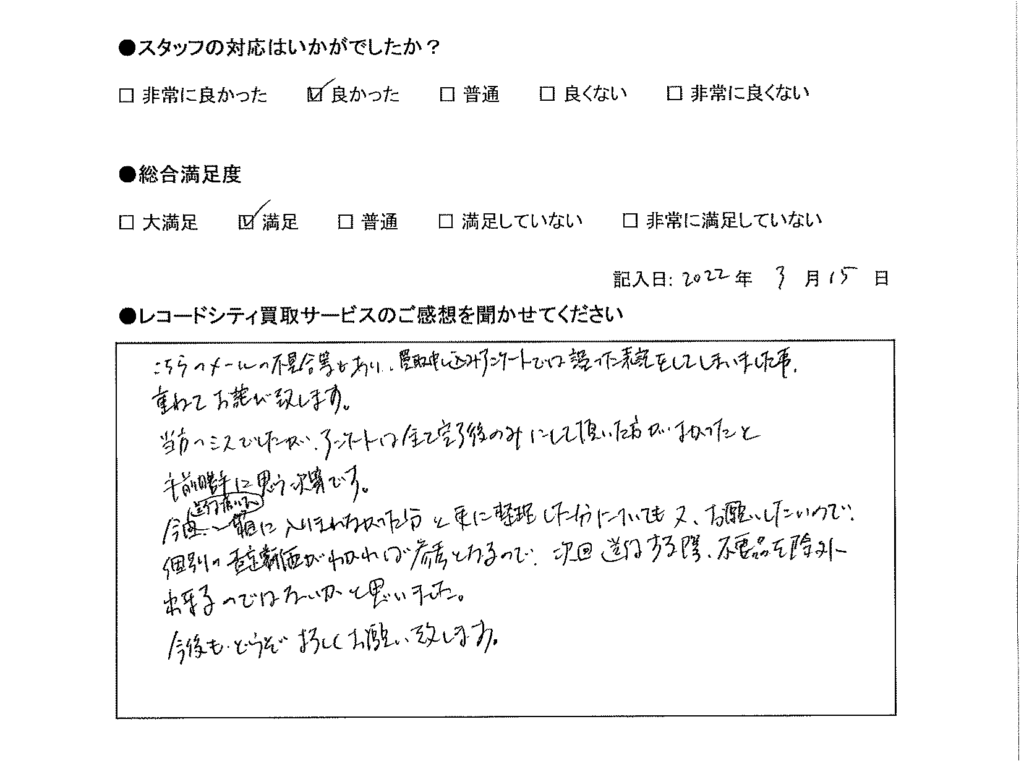 ●スタッフの対応はいかがでしたか？
□ 非常に良かった ☑ 良かった □ 普通 □ 良くない □ 非常に良くない
●総合満足度
□ 大満足 ☑ 満足 □ 普通 □ 満足していない □ 非常に満足していない
記入日: 2022 年 3 月 15 日
●レコードシティ買取サービスのご感想を聞かせてください
こちらのメールの不具合等もあり、買取申し込みアンケートでは誤った表記をしてしまいました事、
重ねてお詫び致します。
当方のミスでしたが、アンケートは全て完了後のみにして頂いた方がよかったと
手前勝手に思う次第です。
今回、箱に入りきれなかった分と更に整理した分についても又、お願いしたいので、
個別の査定額面がわかれば参考となるので、次回送付する際、不要品を除外
出来るのではないかと思いました。
今後も、どうぞよろしくお願い致します。